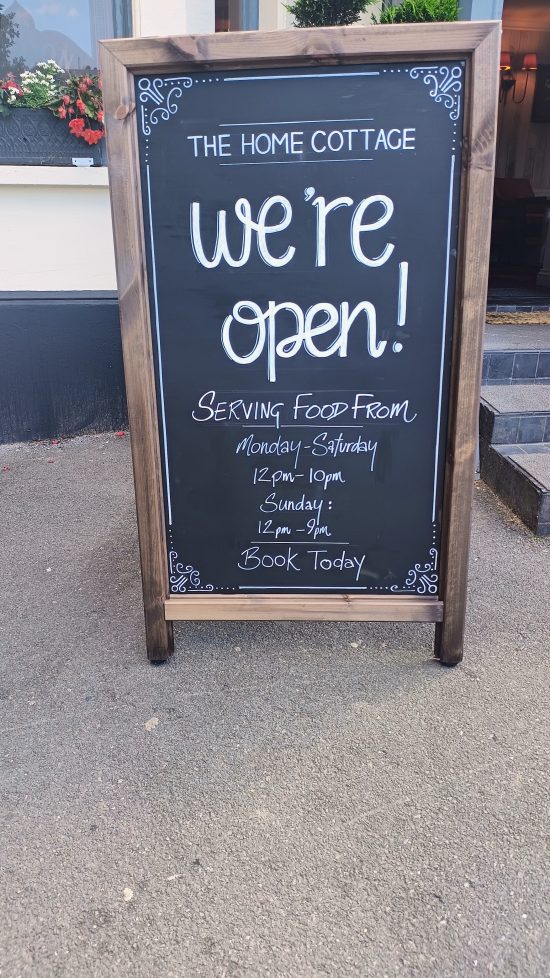 THE HOME COTTAGE
we're
open!
SERVING FOOD FROM
Monday-Saturday
12pm-10pm
Sunday:
12pm-9pm
BOOK TODAY